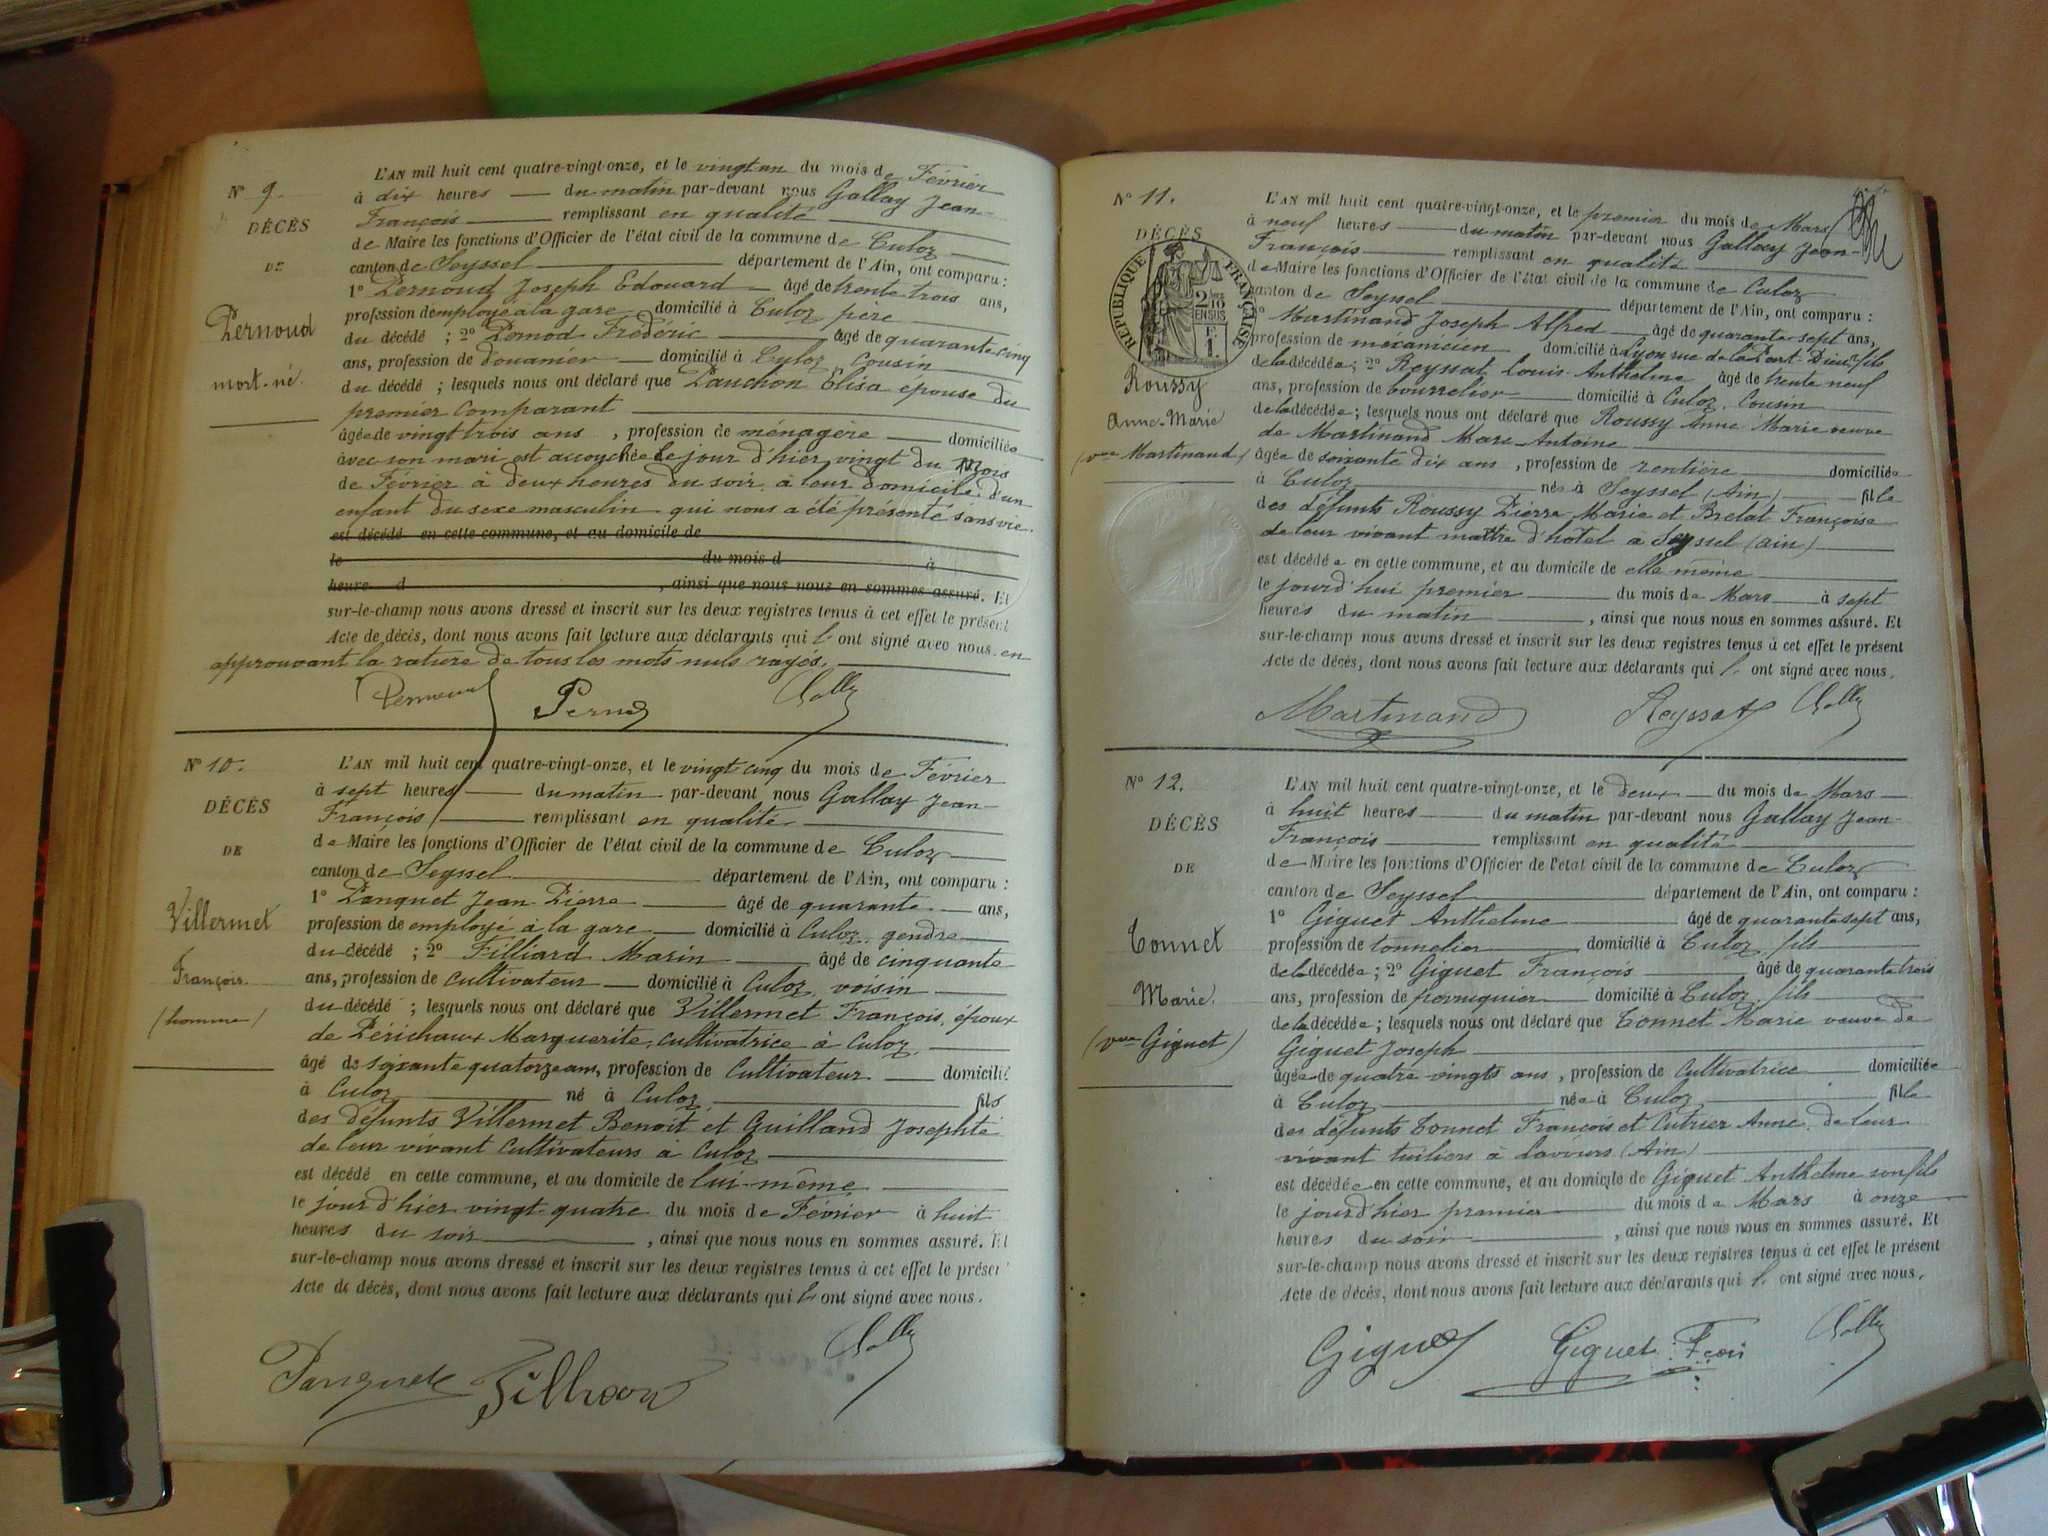 N° 9.
DÉCÈS
DE
Pernoud
mort-né.
L'AN mil huit cent quatre-vingt-onze, et le vingt un du mois de Février
à dix heures du matin par-devant nous Gallay Jean-
François remplissant en qualité
de Maire les fonctions d'Officier de l'état civil de la commune de Culoz
canton de Seyssel département de l'Ain, ont comparu :
1° Pernoud Joseph Edouard âgé de trente trois ans,
profession d'employé à la gare domicilié à Culoz père
du décédé ; 2° Pernod Frédéric âgé de quarante cinq
ans, profession de douanier domicilié à Culoz, cousin
du décédé ; lesquels nous ont déclaré que Pauchon Elisa épouse du
premier comparant
âgée de vingt trois ans , profession de ménagère domiciliée
avec son mari est accouchée le jour d'hier vingt du Mois
de Février à deux heures du soir, à leur domicile, d'un
enfant du sexe masculin qui nous a été présenté sans vie.
est décédé en cette commune, et au domicile de
le du mois d à
heure d , ainsi que nous nous en sommes assuré. Et
sur-le-champ nous avons dressé et inscrit sur les deux registres tenus à cet effet le présent
Acte de décès, dont nous avons fait lecture aux déclarants qui l' ont signé avec nous. en
approuvant la rature de tous les mots nuls rayés.
Pernoud Pernod
N° 10.
DÉCÈS
DE
Villermet
François.
(homme)
L'AN mil huit cent quatre-vingt-onze, et le vingt cinq du mois de Février
à sept heures du matin par-devant nous Gallay Jean-
François remplissant en qualité
de Maire les fonctions d'Officier de l'état civil de la commune de Culoz
canton de Seyssel département de l'Ain, ont comparu :
1° Panquet Jean Pierre âgé de quarante ans,
profession de employé à la gare domicilié à Culoz, gendre
du décédé ; 2° Filliard Marin âgé de cinquante
ans, profession de cultivateur domicilié à Culoz, voisin
du décédé ; lesquels nous ont déclaré que Villermet François, époux
de Périchaux Marguerite, cultivatrice à Culoz,
âgé de soixante quatorze ans, profession de Cultivateur domicilié
à Culoz né à Culoz, fils
des défunts Villermet Benoit et Guilland Josephte
de leur vivant cultivateurs à Culoz
est décédé en cette commune, et au domicile de lui-même
le jour d'hier vingt-quatre du mois de Février à huit
heures du soir , ainsi que nous nous en sommes assuré. Et
sur-le-champ nous avons dressé et inscrit sur les deux registres tenus à cet effet le présent
Acte de décès, dont nous avons fait lecture aux déclarants qui l' ont signé avec nous.
Panquet
N° 11.
DÉCÈS
RÉPUBLIQUE FRANÇAISE
2 10 EN SUS
Roussy
Anne-Marie
(vve Martinand)
L'AN mil huit cent quatre-vingt-onze, et le premier du mois de Mars
à neuf heures du matin par-devant nous Gallay Jean-
François remplissant en qualité
de Maire les fonctions d'Officier de l'état civil de la commune de Culoz
canton de Seyssel département de l'Ain, ont comparu :
1° Martinand Joseph Alfred âgé de quarante sept ans,
profession de mécanicien domicilié à Lyon rue de la Part-Dieu, fils
de la décédée ; 2° Reyssat Louis Anthelme âgé de trente neuf
ans, profession de bourrelier domicilié à Culoz, Cousin
de la décédée ; lesquels nous ont déclaré que Roussy Anne Marie veuve
de Martinand Marc-Antoine
âgée de soixante dix ans , profession de rentière domiciliée
à Culoz née à Seyssel (Ain) fille
des défunts Roussy Pierre Marie et Brelat Françoise
de leur vivant maître d'hôtel à Seyssel (ain)
est décédée en cette commune, et au domicile de elle même
le jourd'hui premier du mois de Mars à sept
heures du matin , ainsi que nous nous en sommes assuré. Et
sur-le-champ nous avons dressé et inscrit sur les deux registres tenus à cet effet le présent
Acte de décès, dont nous avons fait lecture aux déclarants qui l' ont signé avec nous.
Martinand Reyssat
N° 12.
DÉCÈS
DE
Connet
Marie.
(vve Giguet)
L'AN mil huit cent quatre-vingt-onze, et le deux du mois de Mars
à huit heures du matin par-devant nous Gallay Jean-
François remplissant en qualité
de Maire les fonctions d'Officier de l'état civil de la commune de Culoz
canton de Seyssel département de l'Ain, ont comparu :
1° Giguet Anthelme âgé de quarante sept ans,
profession de tonnelier domicilié à Culoz, fils
de la décédée ; 2° Giguet François âgé de quarante trois
ans, profession de perruquier domicilié à Culoz, fils
de la décédée ; lesquels nous ont déclaré que Connet Marie veuve de
Giguet Joseph
âgée de quatre vingts ans , profession de Cultivatrice domiciliée
à Culoz née à Culoz, fille
des défunts Connet François et Cutrier Anne, de leur
vivant tuiliers à Lavours (Ain)
est décédée en cette commune, et au domicile de Giguet Anthelme son fils
le jourd'hier premier du mois de Mars à onze
heures du soir , ainsi que nous nous en sommes assuré. Et
sur-le-champ nous avons dressé et inscrit sur les deux registres tenus à cet effet le présent
Acte de décès, dont nous avons fait lecture aux déclarants qui l' ont signé avec nous.
Giguet Giguet Fçois